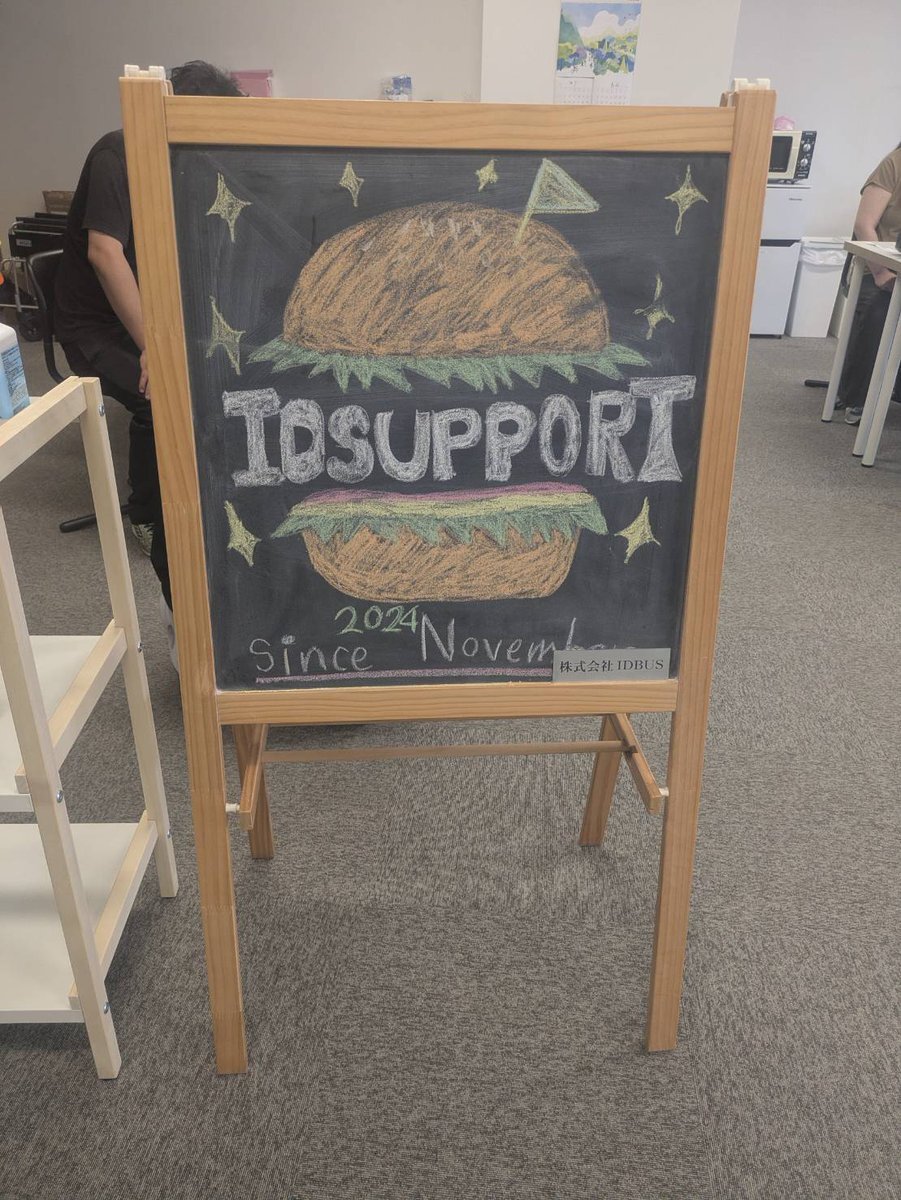 IDSUPPORT
2024
Since November
株式会社 IDBUS